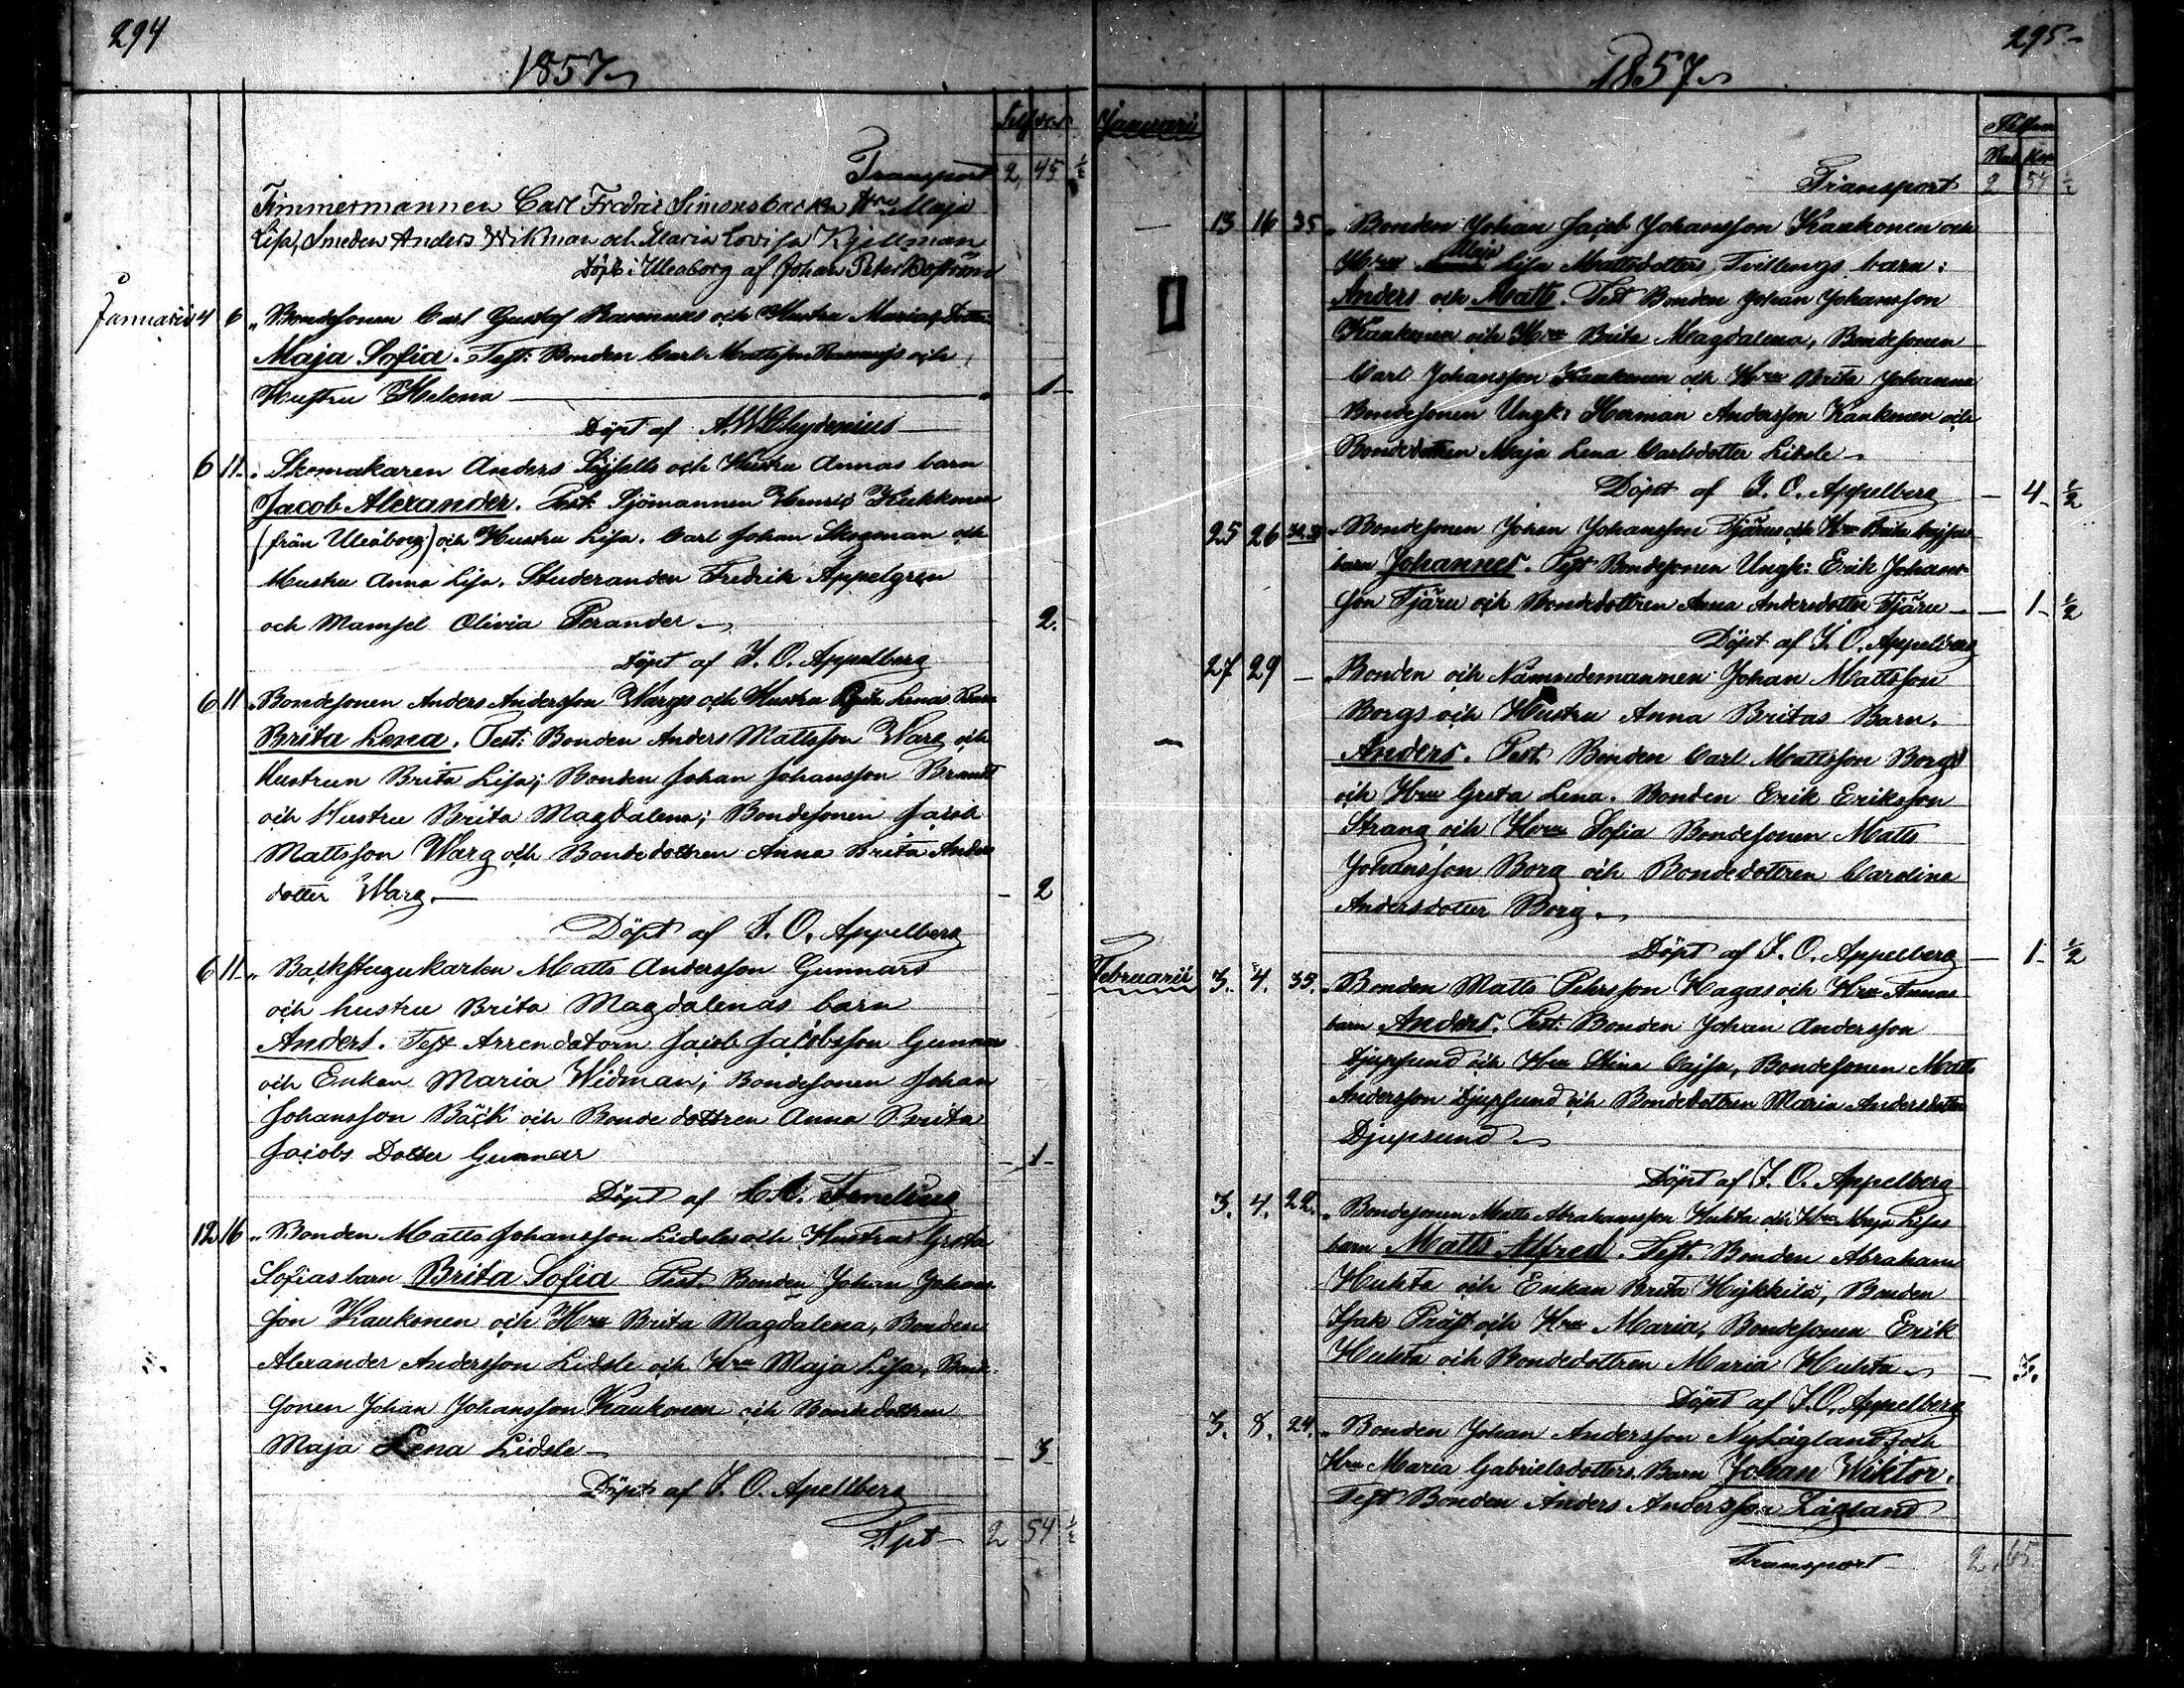 294
1857
Silfver
Transport 2 45 ½
Timmermannen Carl Fredric Simonsbacka Hru Maja
Lisa, Smeden Anders Wikman och Maria Lovisa Kjellman
Döpt i Uleaborg af Johan Peter Boström
Januarii 4 6 Bondesonen Carl Gustaf Rannuks och Hustru Marias Dotter
Maja Sofia. Test: Bonden Carl Mattsson och
Hustru Helena — 1
Döpt af A. W. Chydenius
6 11 Skomakaren Anders och Hustru Annas barn
Jacob Alexander. Test. Sjömannen Henric Kukkonen
(från Uleåborg) och Hustru Lisa. Carl Johan Skogman och
Hustru Anna Lisa. Studeranden Fredrik Appelgren
och Mamsel Olivia Perander. 2.
Döpt af J. O. Appelberg
6 11 Bondesonen Anders Andersson Wargs och Hustru Lenas Barn
Brita Lena. Test: Bonden Anders Mattsson Warg och
Hustrun Brita Lisa; Bonden Johan Johansson Brandt
och Hustru Brita Magdalena; Bondesonen Jacob
Mattsson Warg och Bondedottren Anna Brita Anders
dotter Warg. — 2
Döpt af J. O. Appelberg
6 11 Backstugukarlen Matts Andersson Gunnars
och hustru Brita Magdalenas barn
Anders. Test Arrendatorn Jacob Jacobsson Gunnar
och Enkan Maria Widman; Bondesonen Johan
Johansson Bäck och Bondedottren Anna Brita
Jacobs Dotter Gunnar — 1
Döpt af
12 16 Bonden Matts Johansson Lidsle och Hustrus Greta
Sofias barn Brita Sofia Test. Bonden Johan Johans-
son Kaukonen och Hru Brita Magdalena, Bonden
Alexander Andersson Lidsle och Hru Maja Lisa, Bonde-
sonen Johan Johansson Kaukonen och Bondedottren
Maja Lena Lidsle — 3
Döpt af J. O. Apellberg
Tpt 2 54 ½
295
1857
Januarii
Rub Kop
Transport 2 54 ½
13 16 35 Bonden Johan Jacob Johansson Kaukonen och
Hru Maja Lisa Mattsdotters Tvillings barn:
Anders och Matts. Test Bonden Johan Johansson
Kaukonen och Hru Brita Magdalena, Bondesonen
Carl Johansson Kaukonen och Hru Brita Johanna
Bondesonen Ungk: Herman Andersson Kaukonen och
Bondedottren Maja Lena Carlsdotter Lidsle
Döpt af J. O. Appelberg — 4 ½
25 26 Bondesonen Johan Johansson Tjärus och Hru Brita Cajsas
barn Johannes. Test Bondesonen Ungk: Erik Johans-
son Tjäru och Bondedottren Anna Andersdotter Tjäru — 1 ½
Döpt af J. O. Appelberg
27 29 — Bonden och Nämndemannen Johan Mattsson
Borgs och Hustru Anna Britas Barn.
Anders. Test. Bonden Carl Mattsson Borg
och Hru Greta Lena. Bonden Erik Eriksson
Strang och Hru Sofia Bondesonen Matts
Johansson Borg och Bondedottren Carolina
Andersdotter Borg.
Döpt af J. O. Appelberg — 1 ½
Februarii 3. 4. 35. Bonden Matts Pehrsson Hagas och Hru Annas
barn Anders. Test: Bonden Johan Andersson
Djupsund och Hru Stina Cajsa, Bondesonen Matts
Andersson Djupsund och Bondedottren Maria Andersdotter
Djupsund
Döpt af J. O. Appelberg
3. 4. 22. Bondesonen Matts Abrahamsson Huhta och Hru Maja Lisas
barn Matts Alfred. Test. Bonden Abraham
Huhta och Enkan Brita Hykkilä, Bonden
Isak Präst och Hru Maria, Bondesonen Erik
Huhta och Bondedottren Maria Huhta — 3.
Döpt af J. O. Appelberg
3. 8. 24. Bonden Johan Andersson NyLågland och
Hru Maria Gabrielsdotters Barn Johan Wiktor.
Test Bonden Anders Andersson Lågland
Transport 2 65